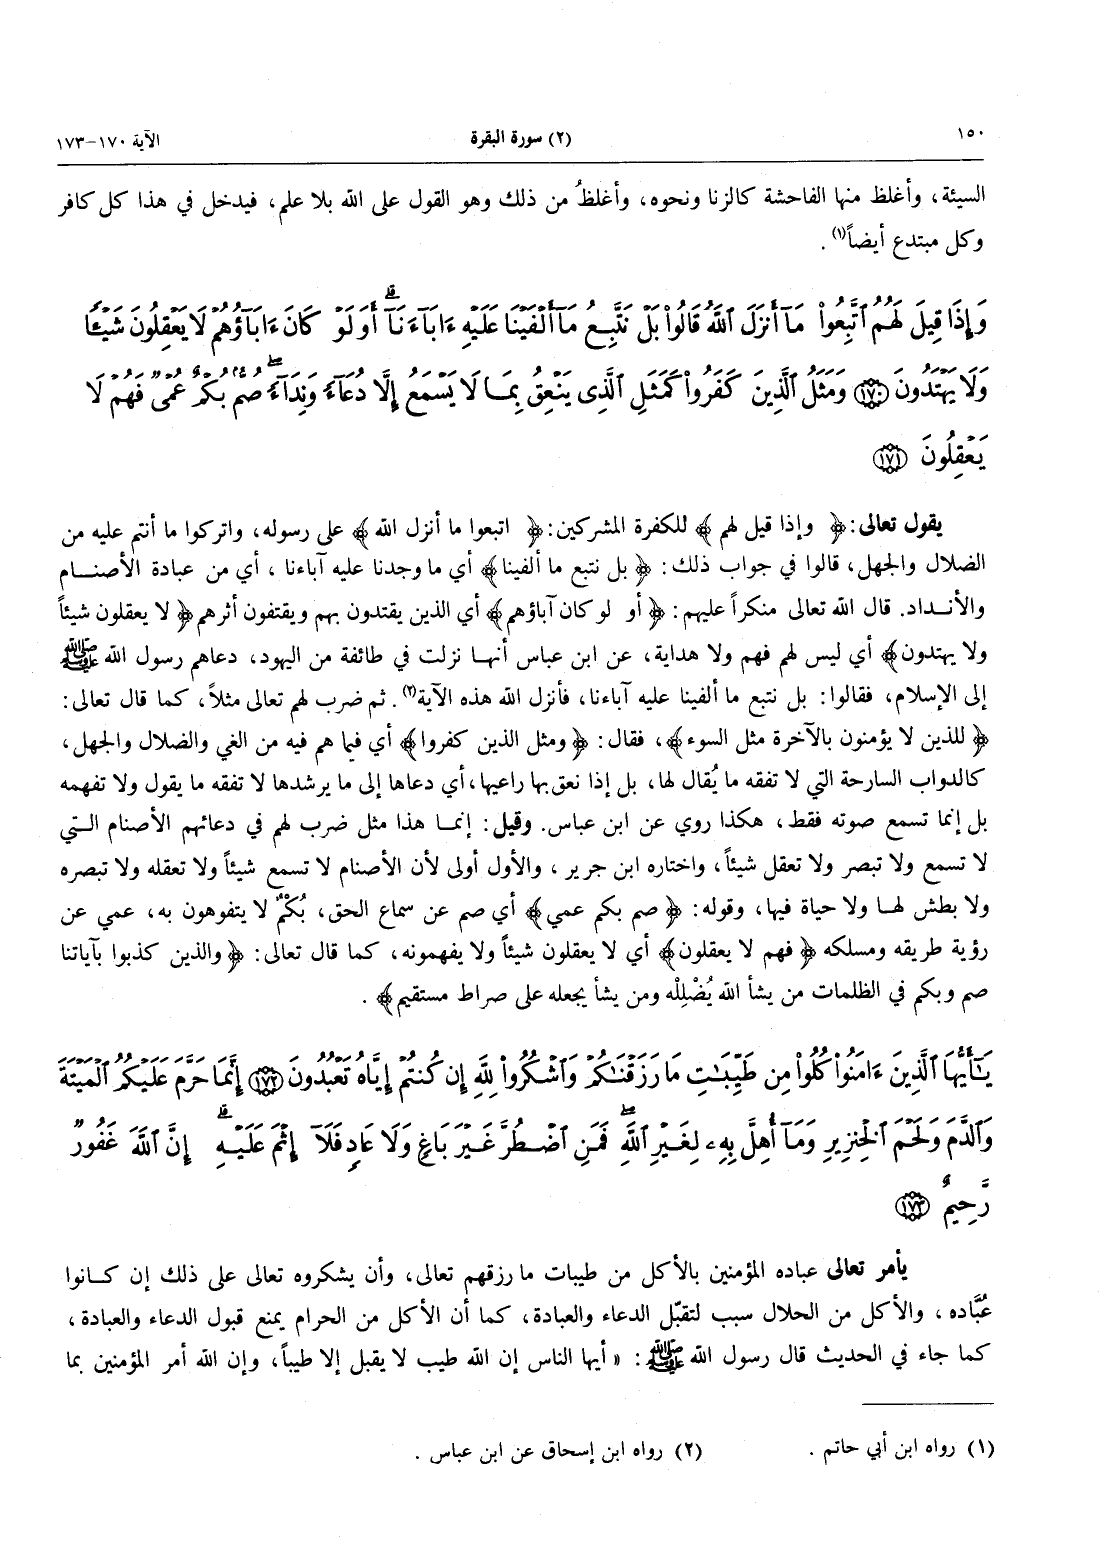 ١٥٠ (٢) سورة البقرة الآية ١٧٠-١٧٣
السيئة، وأغلظ منها الفاحشة كالزنا ونحوه، وأغلظُ من ذلك وهو القول على الله بلا علم، فيدخل في هذا كل كافر
وكل مبتدع أيضاً(١) .
وَإِذَا قِيلَ لَهُمُ ٱتَّبِعُوا۟ مَآ أَنزَلَ ٱللَّهُ قَالُوا۟ بَلْ نَتَّبِعُ مَآ أَلْفَيْنَا عَلَيْهِ ءَابَآءَنَآ ۗ أَوَلَوْ كَانَ ءَابَآؤُهُمْ لَا يَعْقِلُونَ شَيْـًٔا
وَلَا يَهْتَدُونَ ﴿١٧٠﴾ وَمَثَلُ ٱلَّذِينَ كَفَرُوا۟ كَمَثَلِ ٱلَّذِى يَنْعِقُ بِمَا لَا يَسْمَعُ إِلَّا دُعَآءً وَنِدَآءً ۚ صُمٌّۢ بُكْمٌ عُمْىٌ فَهُمْ لَا
يَعْقِلُونَ ﴿١٧١﴾
يقول تعالى: ﴿ وإذا قيل لهم ﴾ للكفرة المشركين: ﴿ اتبعوا ما أنزل الله ﴾ على رسوله، واتركوا ما أنتم عليه من
الضلال والجهل، قالوا في جواب ذلك: ﴿ بل نتبع ما ألفينا ﴾ أي ما وجدنا عليه آباءنا ، أي من عبادة الأصنـام
والأنـداد. قال الله تعالى منكراً عليهم: ﴿ أو لو كان آباؤهم ﴾ أي الذين يقتدون بهم ويقتفون أثرهم ﴿ لا يعقلون شيئاً
ولا يهتدون ﴾ أي ليس لهم فهم ولا هداية، عن ابن عباس أنهـا نزلت في طائفة من اليهود، دعاهم رسول الله ﷺ
إلى الإسلام، فقالوا: بل نتبع ما ألفينا عليه آباءنا، فأنزل الله هذه الآية(٢). ثم ضرب لهم تعالى مثلاً، كما قال تعالى:
﴿ للذين لا يؤمنون بالآخرة مثل السوء ﴾، فقال: ﴿ ومثل الذين كفروا ﴾ أي فيما هم فيه من الغي والضلال والجهل،
كالدواب السارحة التي لا تفقه ما يُقال لها، بل إذا نعق بها راعيها، أي دعاها إلى ما يرشدها لا تفقه ما يقول ولا تفهمه
بل إنما تسمع صوته فقط، هكذا روي عن ابن عباس. وقيل: إنمـا هذا مثل ضرب لهم في دعائهم الأصنام التـي
لا تسمع ولا تبصر ولا تعقل شيئاً، واختاره ابن جرير ، والأول أولى لأن الأصنام لا تسمع شيئاً ولا تعقله ولا تبصره
ولا بطش لهـا ولا حياة فيها، وقوله: ﴿ صم بكم عمي ﴾ أي صم عن سماع الحق، بُكْمٌ لا يتفوهون به، عمي عن
رؤية طريقه ومسلكه ﴿ فهم لا يعقلون ﴾ أي لا يعقلون شيئاً ولا يفهمونه، كما قال تعالى: ﴿ والذين كذبوا بآياتنا
صم وبكم في الظلمات من يشأ الله يُضْلِلْه ومن يشأ يجعله على صراط مستقيم ﴾ .
يَـٰٓأَيُّهَا ٱلَّذِينَ ءَامَنُوا۟ كُلُوا۟ مِن طَيِّبَـٰتِ مَا رَزَقْنَـٰكُمْ وَٱشْكُرُوا۟ لِلَّهِ إِن كُنتُمْ إِيَّاهُ تَعْبُدُونَ ﴿١٧٢﴾ إِنَّمَا حَرَّمَ عَلَيْكُمُ ٱلْمَيْتَةَ
وَٱلدَّمَ وَلَحْمَ ٱلْخِنزِيرِ وَمَآ أُهِلَّ بِهِۦ لِغَيْرِ ٱللَّهِ ۖ فَمَنِ ٱضْطُرَّ غَيْرَ بَاغٍ وَلَا عَادٍ فَلَآ إِثْمَ عَلَيْهِ ۗ إِنَّ ٱللَّهَ غَفُورٌ
رَّحِيمٌ ﴿١٧٣﴾
يأمر تعالى عباده المؤمنين بالأكل من طيبات ما رزقهم تعالى، وأن يشكروه تعالى على ذلك إن كـانوا
عُبَّاده ، والأكل من الحلال سبب لتقبّل الدعاء والعبادة، كما أن الأكل من الحرام يمنع قبول الدعاء والعبادة،
كما جاء في الحديث قال رسول الله ﷺ : « أيها الناس إن الله طيب لا يقبل إلا طيباً، وإن الله أمر المؤمنين بما
(١) رواه ابن أبي حاتم . (٢) رواه ابن إسحاق عن ابن عباس .